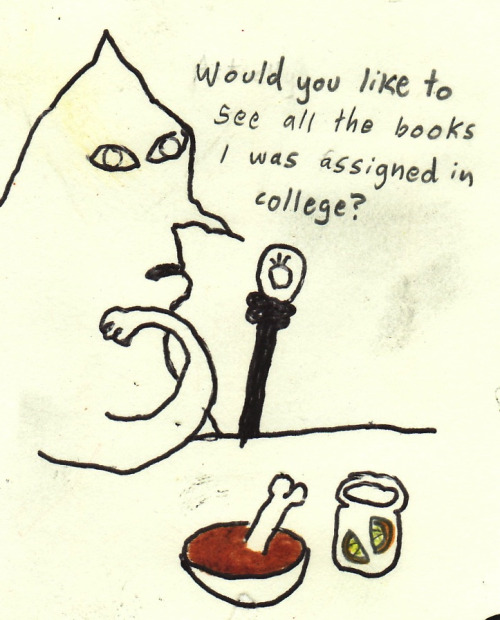 Would you like to
See all the books
I was assigned in
college?